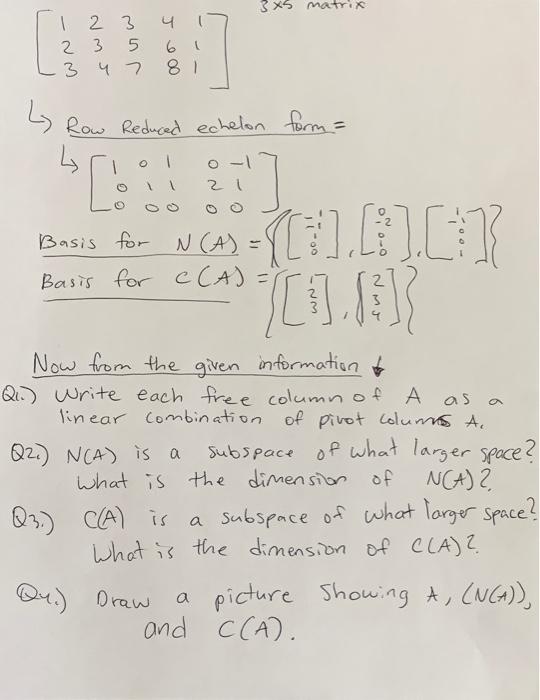 3x5 matrix
[1 2 3 4 1
2 3 5 6 1
3 4 7 8 1]
↳ Row Reduced echelon form =
↳ [1 0 1 0 -1
0 1 1 2 1
0 0 0 0 0]
Basis for N(A) = {[-1 -1 1 0 0], [0 -2 0 1 0], [1 -1 0 0 1]}
Basis for C(A) = {[1 2 3], [2 3 4]}
Now from the given information ↓
Q1.) Write each free column of A as a
linear combination of pivot columns A.
Q2.) N(A) is a subspace of what larger space?
What is the dimension of N(A)?
Q3.) C(A) is a subspace of what larger space?
What is the dimension of C(A)?
Q4.) Draw a picture showing A, (N(A)),
and C(A).